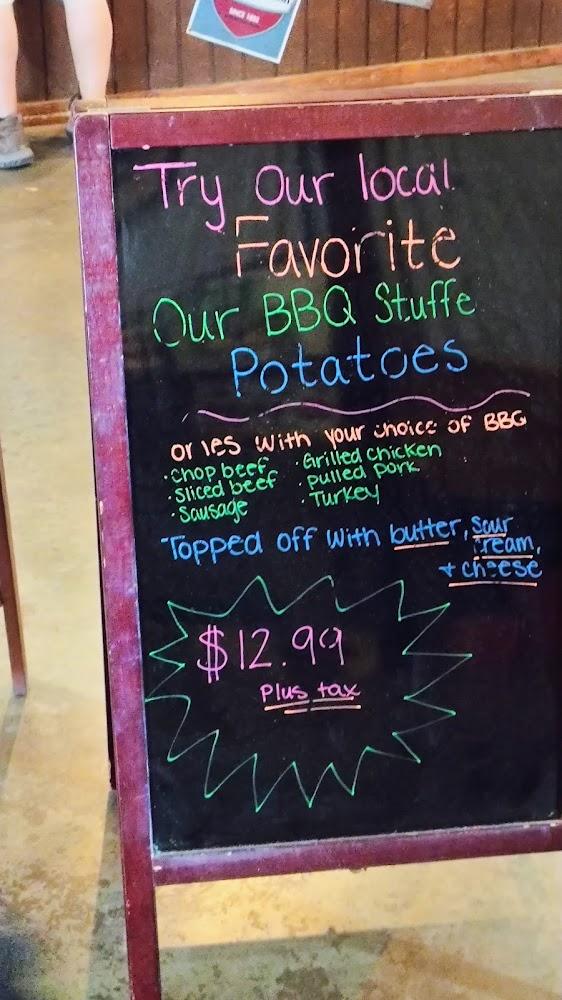 Try our local
Favorite
Our BBQ Stuffe
Potatoes
with your choice of BBQ
· Chop beef · Grilled chicken
· Sliced beef · pulled pork
· Sausage · Turkey
Topped off with butter, sour
ream,
+ cheese
$12.99
Plus tax